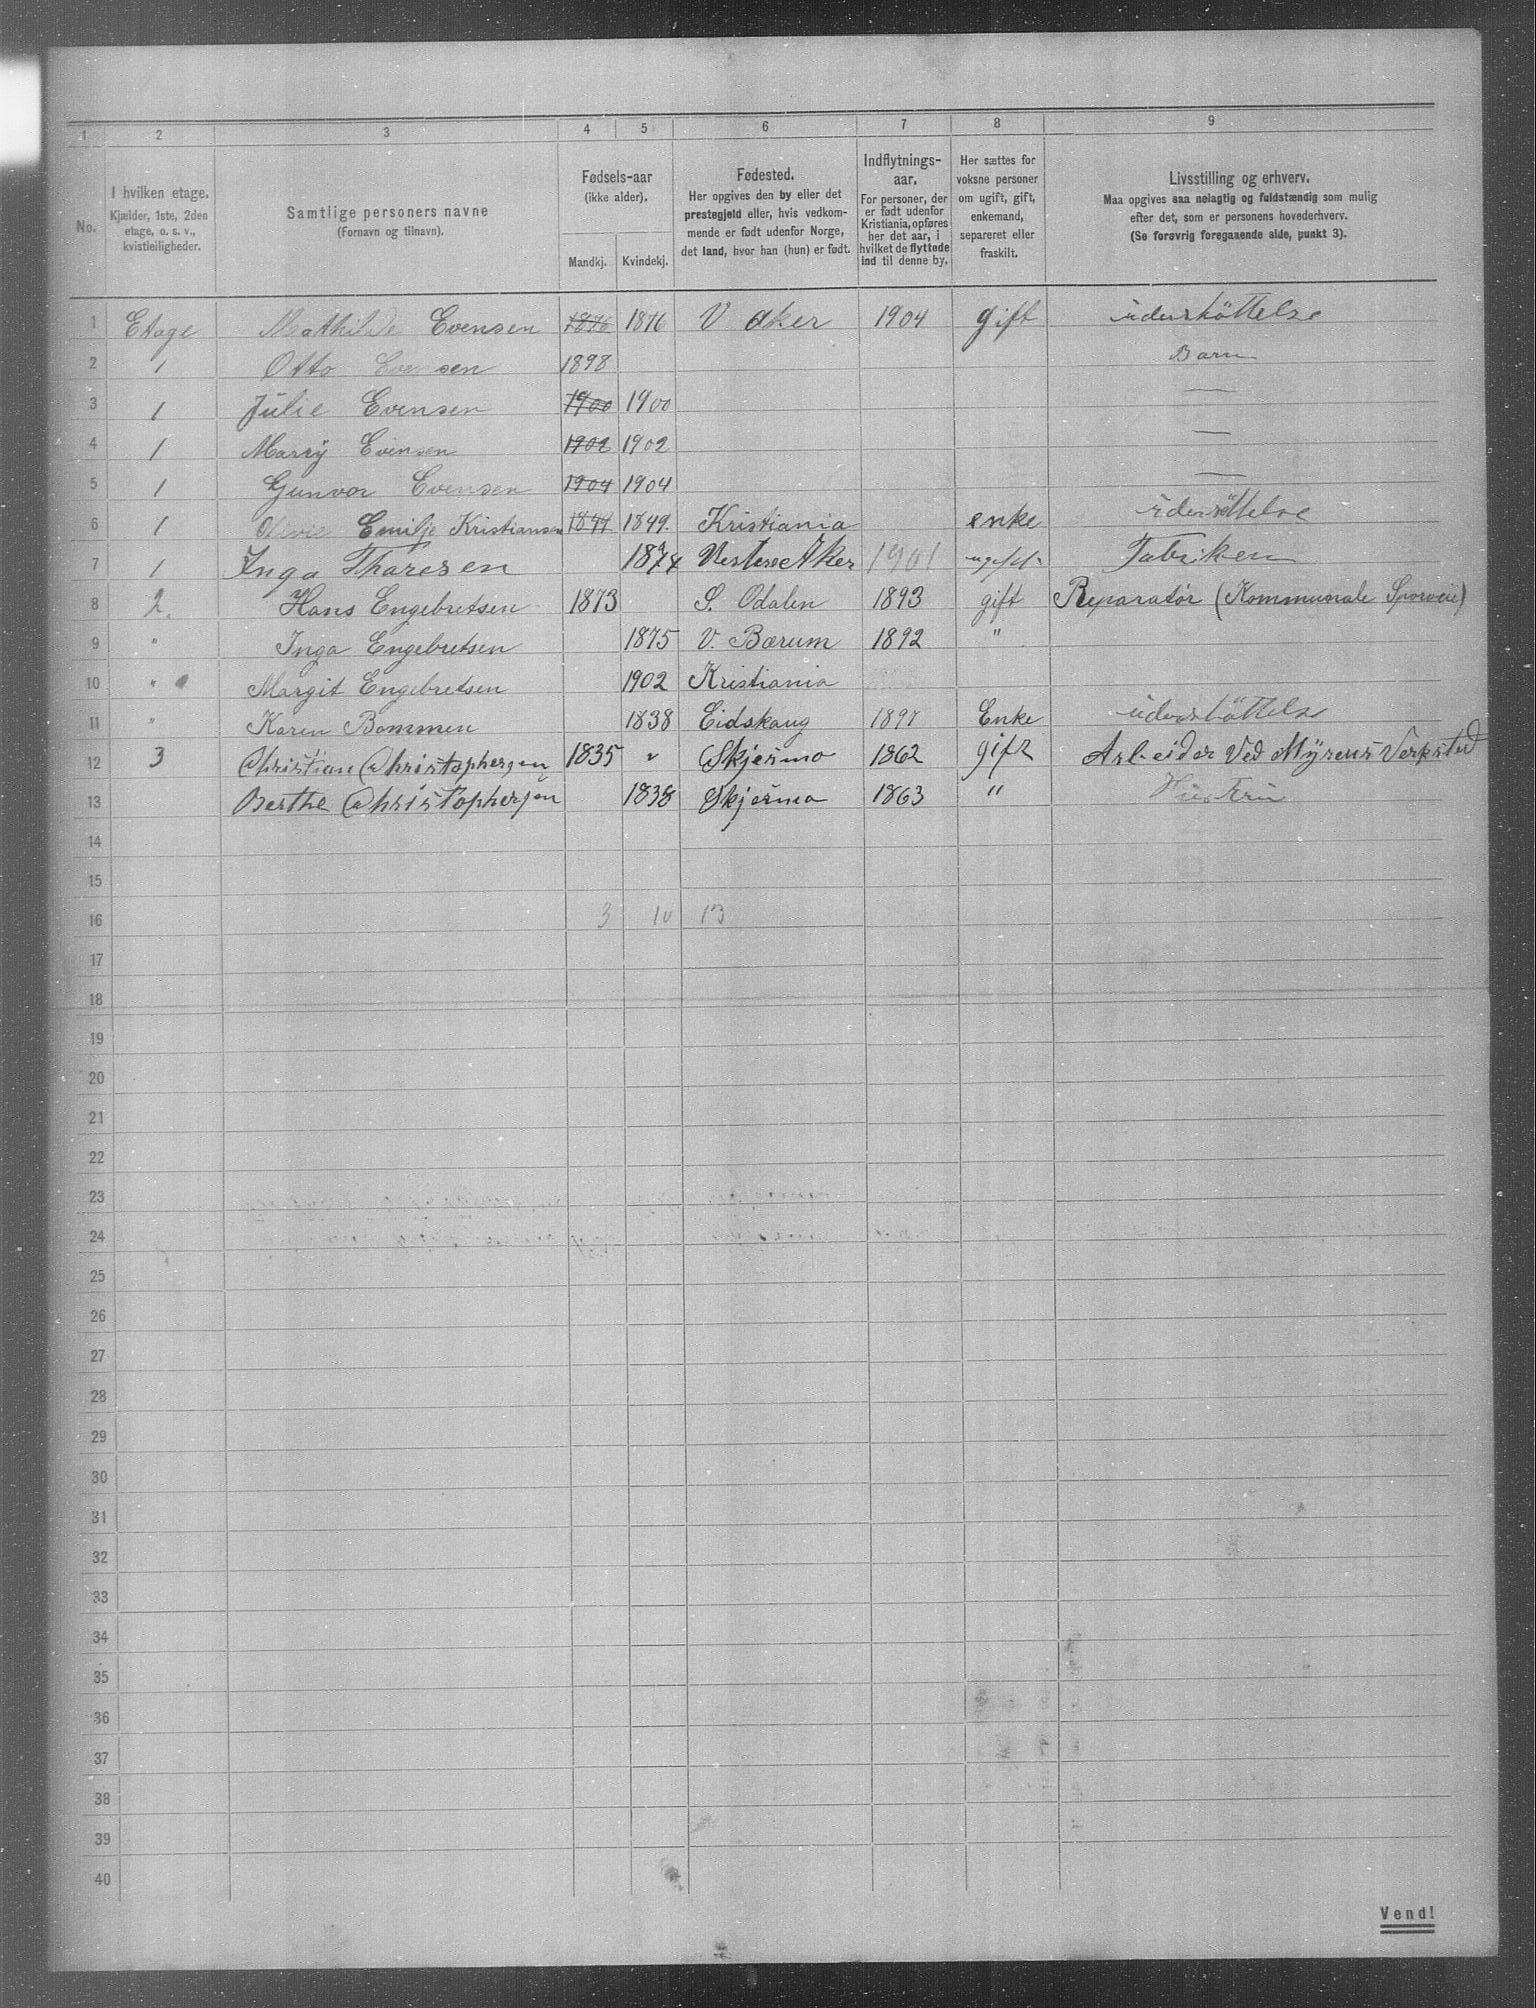 1 2 3 4 5 6 7 8 9
No.
I hvilken etage.
Kjælder, 1ste, 2den
etage, o. s. v.,
kvistleiligheder.
Samtlige personers navne
(Fornavn og tilnavn).
Fødsels-aar
(ikke alder).
Mandkj. Kvindekj.
Fødested.
Her opgives den by eller det
prestegjeld eller, hvis vedkom-
mende er født udenfor Norge,
det land, hvor han (hun) er født.
Indflytnings-
aar.
For personer, der
er født udenfor
Kristiania, opføres
her det aar, i
hvilket de flyttede
ind til denne by.
Her sættes for
voksne personer
om ugift, gift,
enkemand,
separeret eller
fraskilt.
Livsstilling og erhverv.
Maa opgives saa nøiagtig og fuldstændig som mulig
efter det, som er personens hovederhverv.
(Se forøvrig foregaaende side, punkt 3).
1 Etage Mathilde Evensen 1876 1876 V Aker 1904 gift understöttelse
2 1 Otto Evensen 1898 Barn
3 1 Julie Evensen 1900 1900 —
4 1 Marry Evensen 1902 1902 —
5 1 Gunvor Evensen 1904 1904 —
6 1 Emilje Kristiansen 1849 1849. Kristiania enke
7 1 Inga Tharesen 1874 Vestere Aker 1901 ugift Fabriken
8 2. Hans Engebretsen 1873 S. Odalen 1893 gift Reparatør (Kommunale Sporveie)
9 " Inga Engebretsen 1875 V. Bærum 1892 "
10 " Margit Engebretsen 1902 Kristiania
11 " Karen Bommen 1838 Eidskaug 1897 Enke understöttelse
12 3 Christian Christophersen 1835 " Skjermo 1862 gift Arbeider Ved Myrens Verksted
13 Berthe Christophersen 1838 Skjermo 1863 " Hustru
14
15
16 3 10 13
17
18
19
20
21
22
23
24
25
26
27
28
29
30
31
32
33
34
35
36
37
38
39
40
Vend!